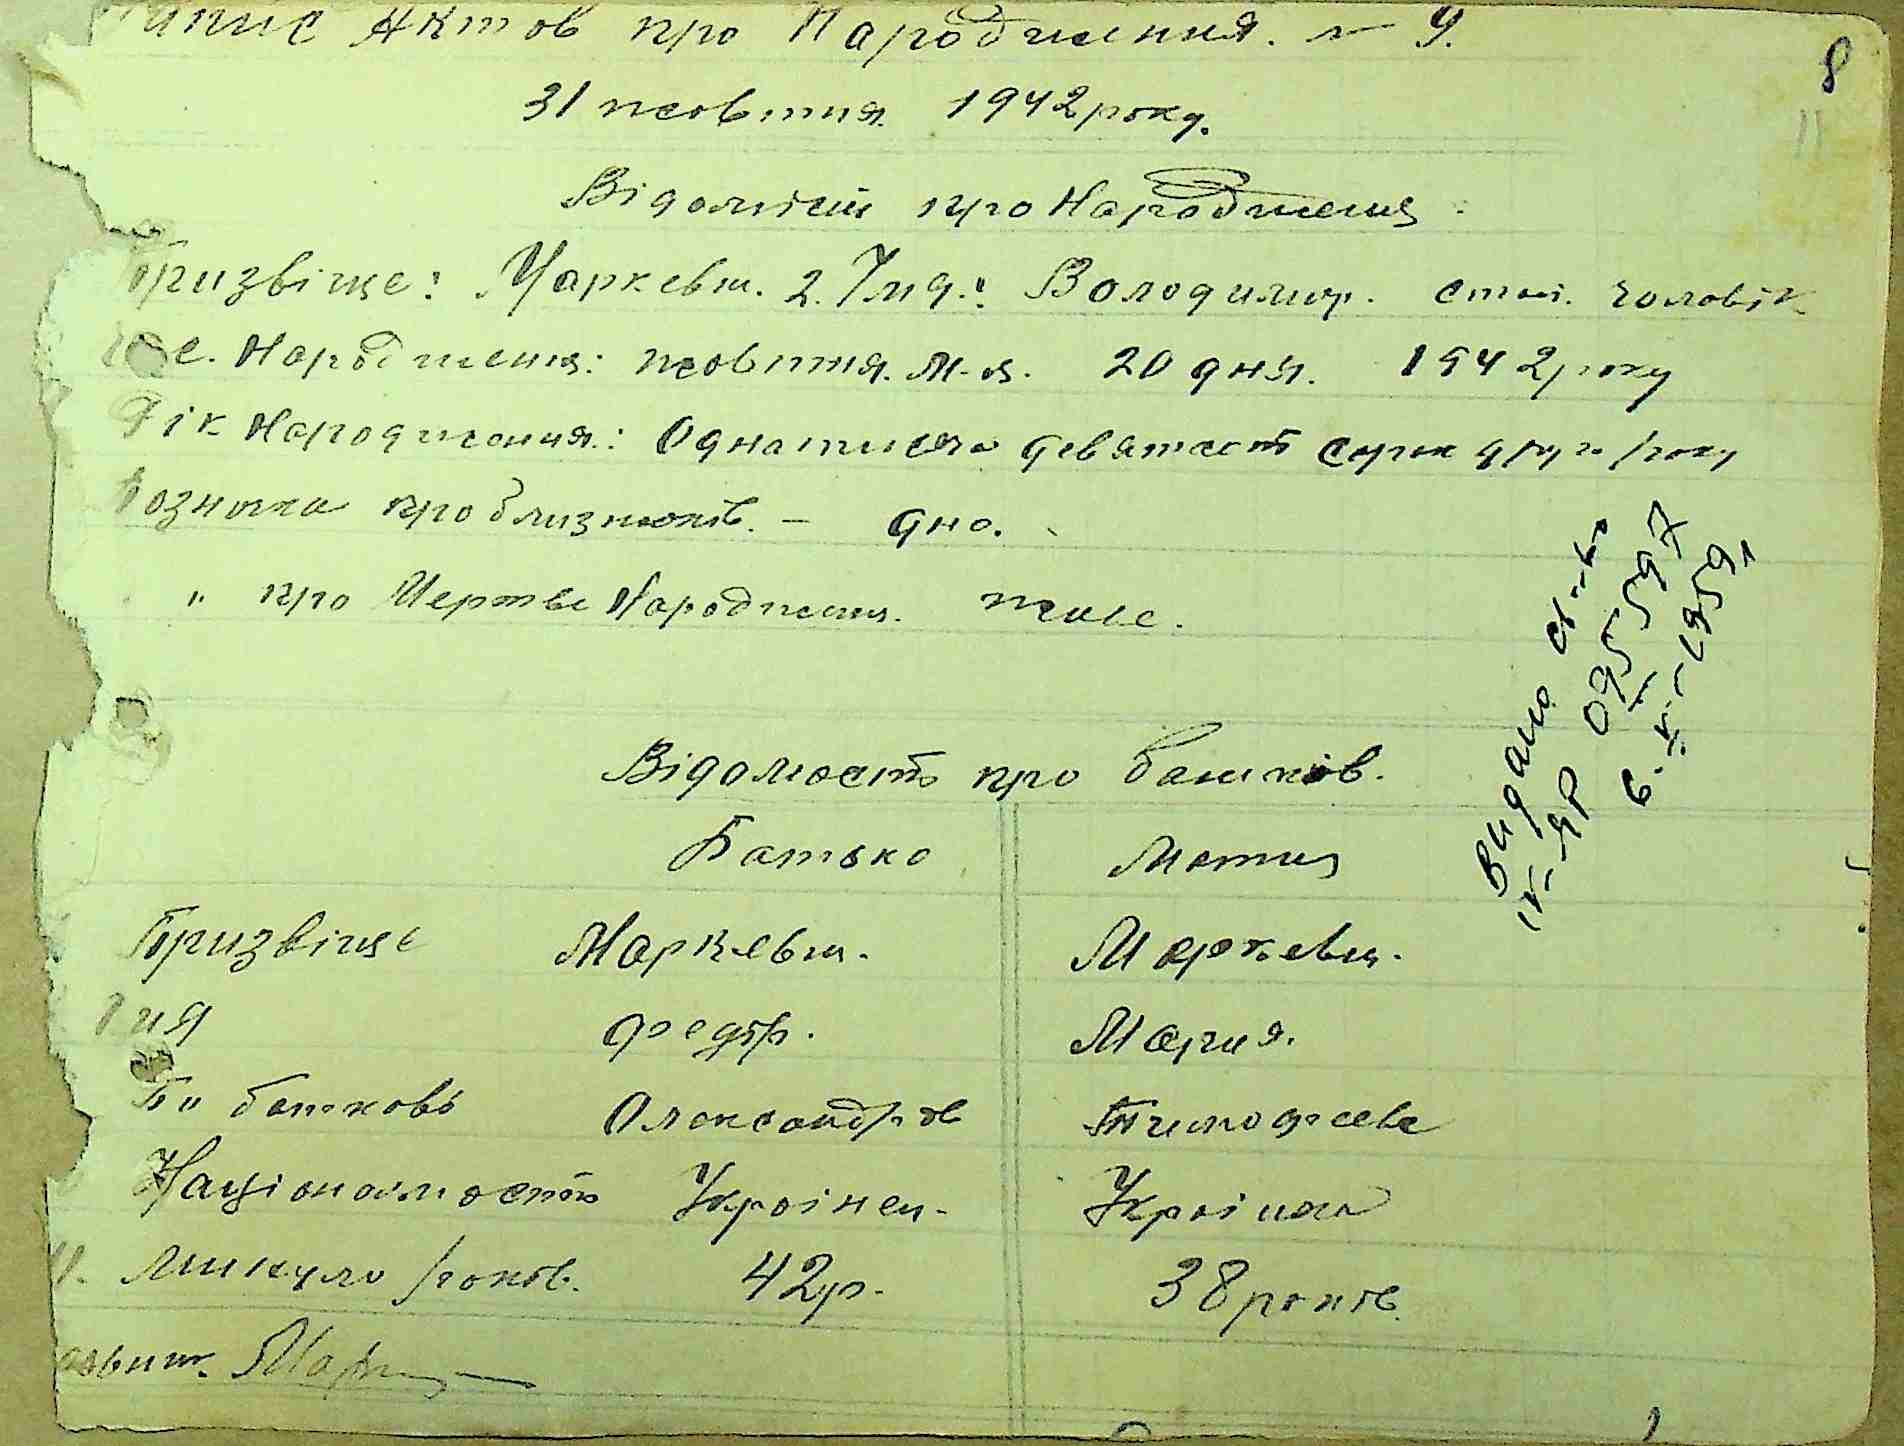 Запис Актов про Народження. № 9.
8
11
31 жовтня 1942 року.
Відомість про Народження
Призвіще: Маркевич. 2. Імя: Володимир. стать. чоловік
Народження: жовтня. м-я. 20 дня. 1942 року
Рік Народження: Одна тисяча девятсот сорок друго року
Позначка про близнюків. – одно.
" про Мертве Народження. живе.
Видано св-во
IV-ЯР 095597
6.II-1959
Відомость про батьків.
Батько Мати
Призвіще Маркевич. Маркевич.
Імя Федір. Мария.
По батькові Олександров Тимофеева
Національность Українец. Українка
Минуло років. 42 р. 38 років.